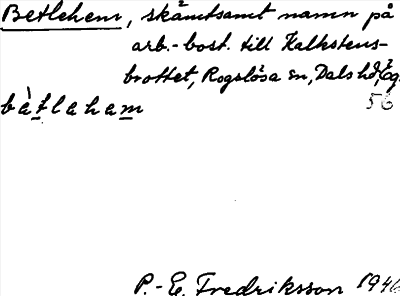 Betlehem, skämtsamt namn på
arb.-bost. till Kalkstens-
brottet, Rogslösa sn, Dals hd, Ög.
bètlaham 56
P.-E. Fredriksson 1946